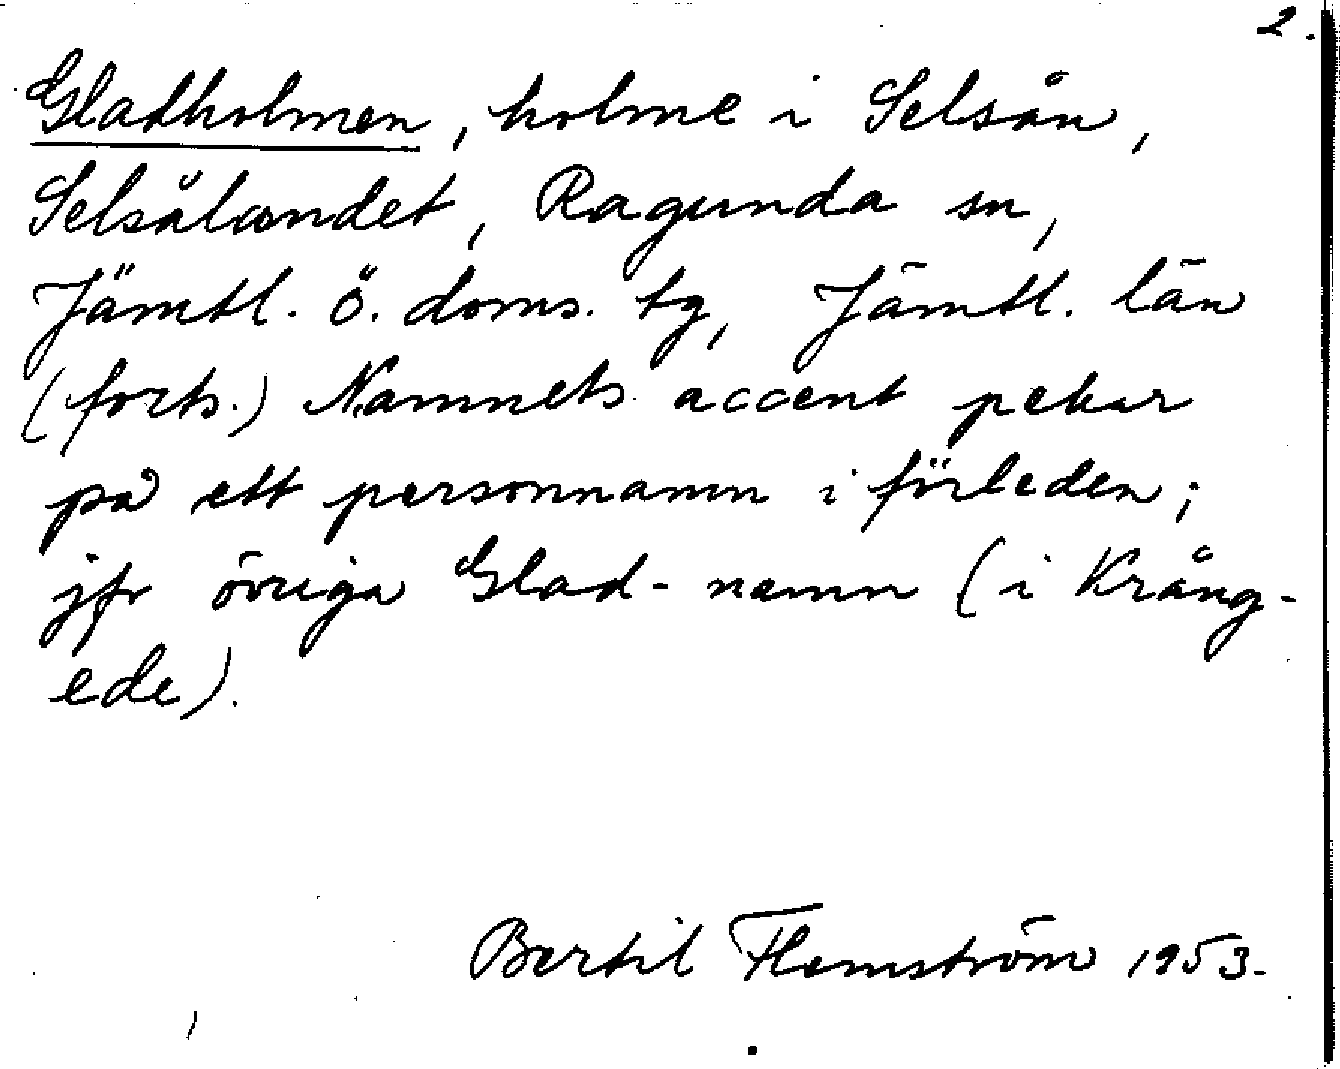 2.
Gladholmen, holme i Selsån,
Selsålandet, Ragunda sn,
Jämtl. ö. doms. tg, Jämtl. län
(forts.) Namnets accent pekar
på ett personnamn i förleden;
jfr övriga Glad- namn (i Krång-
ede).
Bertil Flemström 1953.